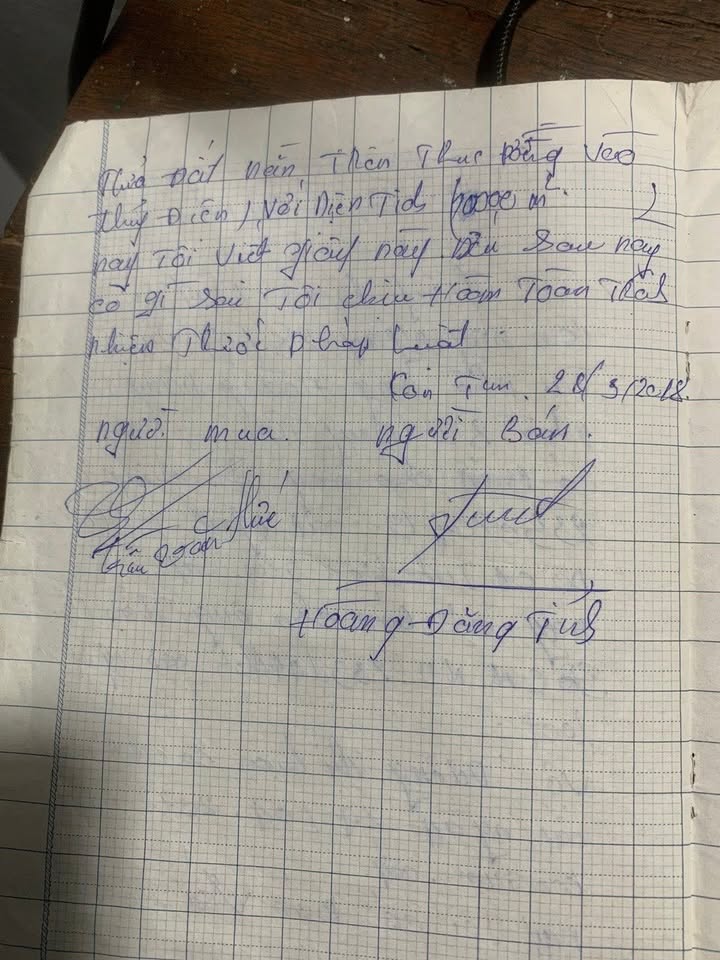 Thửa Đất nằn Trên Trục Đường Vào
thuỷ Điện, Với Diện Tích 10000 m²
nay Tôi Viết giấy này nếu sau này
có gì sai Tôi chiu Hoàn Toàn Trách
nhiệm Trước pháp luật.
Kon Tum. 28/3/2018.
người mua. người Bán.
Trần Hoàng Đăng Tình